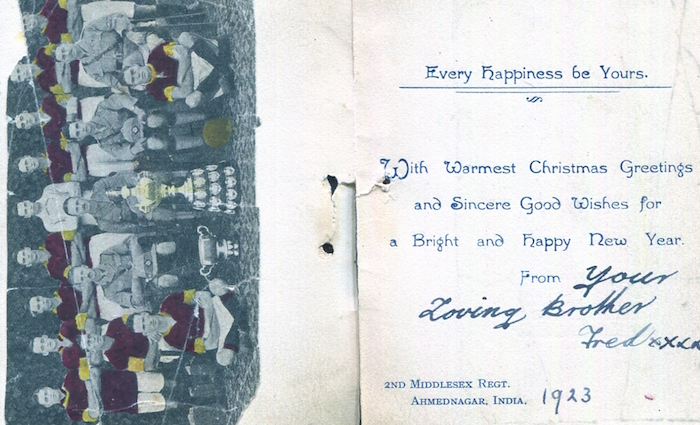 Every Happiness be Yours.
With Warmest Christmas Greetings
and Sincere Good Wishes for
a Bright and Happy New Year.
From Your
Loving Brother
Fred xxxx
2ND MIDDLESEX REGT.
AHMEDNAGAR, INDIA. 1923